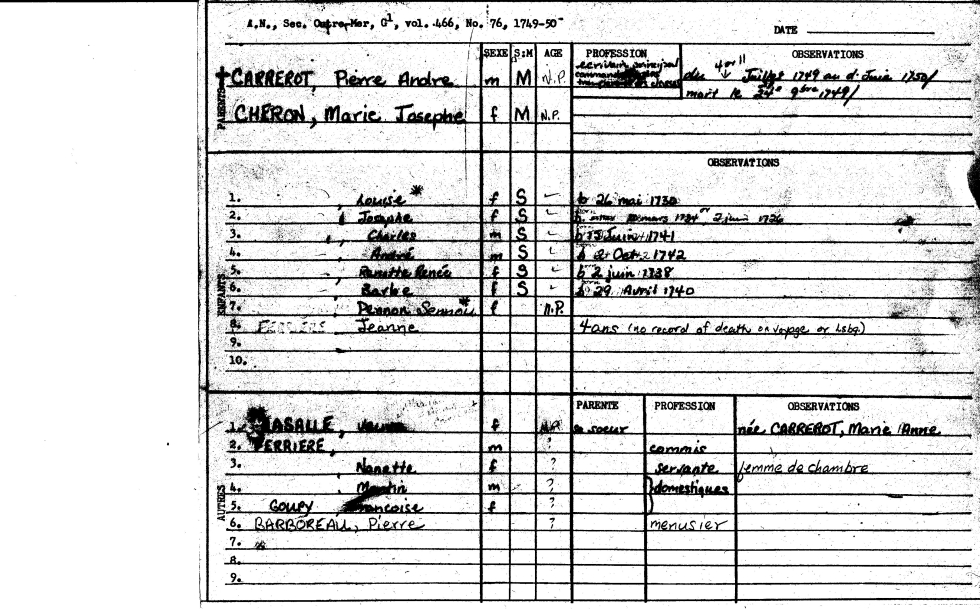 A.N., Sec. Outre-Mer, G1, vol. 466, No. 76, 1749-50
DATE
SEXE S:M AGE PROFESSION OBSERVATIONS
PARENTS
CARREROT, Pierre Andre m M N.P. ecrivain principal du 4 or 11 Juillet 1749 au d. Juin 1750/
mort le 24e 9bre 1749/
CHERON, Marie Josephe f M N.P.
OBSERVATIONS
ENFANTS
1. , Louise* f S b 26 mai 1730
2. , Josephe f S mars 1734 or 2 juin 1736
3. , Charles m S b 15 Juin 1741
4. , André m S b 2 Oct. 1742
5. , Renée f S b 2 juin 1738
6. , Barbe f S b 29 Avril 1740
7. , Pennon * f N.P.
8. Jeanne 4 ans (no record of death on voyage or Lsbg.)
9.
10.
PARENTE PROFESSION OBSERVATIONS
AUTRES
1. LASALLE, f N.P. soeur née CARREROT, Marie Anne
2. FERRIERE, m ? commis
3. , Nanette f ? servante femme de chambre
4. , Martin m ? domestiques
5. GOUPY Francoise f ?
6. BARBOREAU, Pierre ? menusier
7.
8.
9.